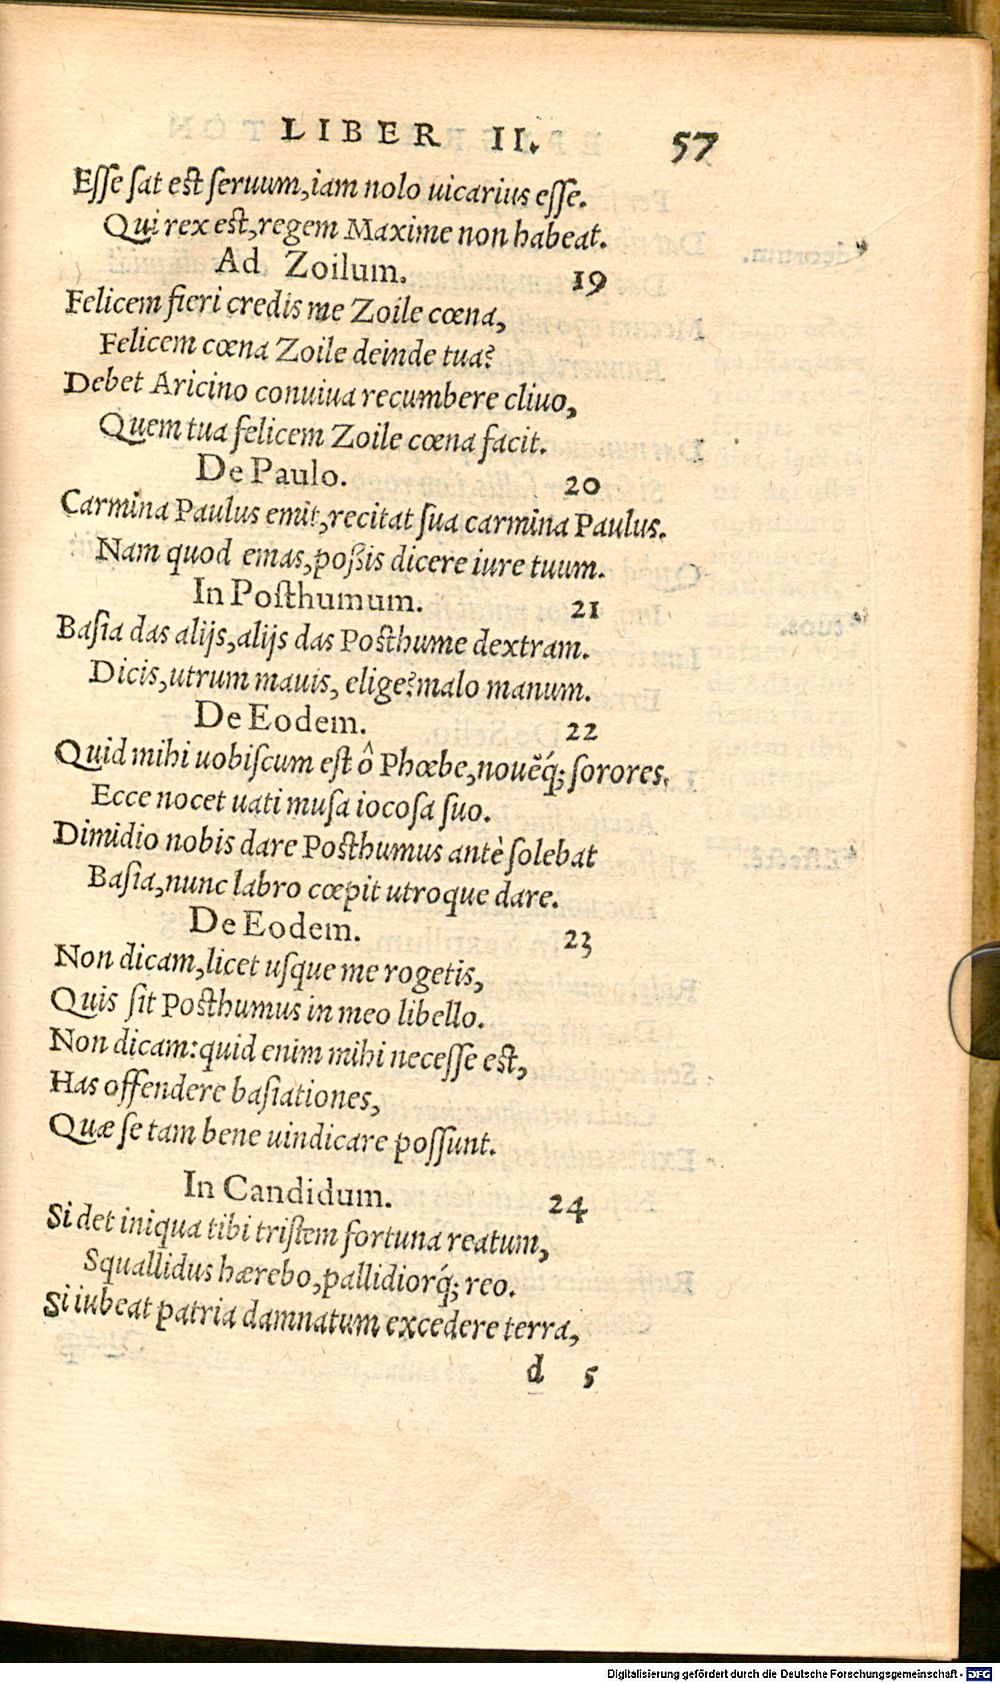 LIBER II. 57
Esse sat est seruum, iam nolo uicarius esse.
Qui rex est, regem Maxime non habeat.
Ad Zoilum. 19
Felicem fieri credis me Zoile cœna,
Felicem cœna Zoile deinde tua?
Debet Aricino conuiua recumbere cliuo,
Quem tua felicem Zoile cœna facit.
De Paulo. 20
Carmina Paulus emit, recitat sua carmina Paulus.
Nam quod emas, poßis dicere iure tuum.
In Posthumum. 21
Basia das alijs, alijs das Posthume dextram.
Dicis, utrum mauis, elige? malo manum.
De Eodem. 22
Quid mihi uobiscum est ô Phœbe, nouẽq́; sorores.
Ecce nocet uati musa iocosa suo.
Dimidio nobis dare Posthumus antè solebat
Basia, nunc labro cœpit utroque dare.
De Eodem. 23
Non dicam, licet usque me rogetis,
Quis sit Posthumus in meo libello.
Non dicam: quid enim mihi necesse est,
Has offendere basiationes,
Quæ se tam bene uindicare possunt.
In Candidum. 24
Si det iniqua tibi tristem fortuna reatum,
Squallidus hærebo, pallidiorq́; reo.
Si iubeat patria damnatum excedere terra,
d 5
Digitalisierung gefördert durch die Deutsche Forschungsgemeinschaft - DFG